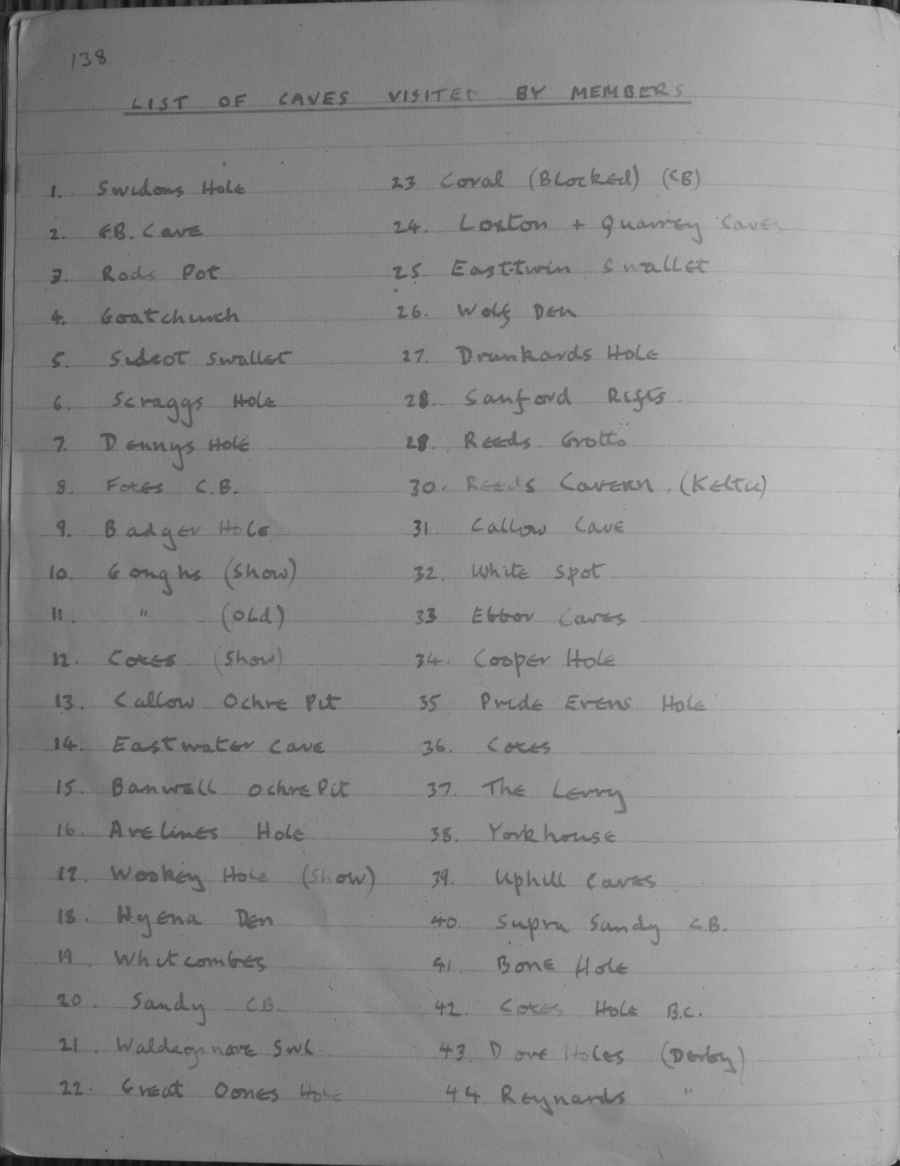 138
LIST OF CAVES VISITED BY MEMBERS
1. Swidons Hole
2. G.B. Cave
3. Rods Pot
4. Goatchurch
5. Sidcot Swallet
6. Scraggs Hole
7. Dennys Hole
8. Foxes C.B.
9. Badger Hole
10. Goughs (Show)
11. " (Old)
12. Coxes (Show)
13. Callow Ochre Pit
14. Eastwater Cave
15. Banwell Ochre Pit
16. Avelines Hole
17. Wookey Hole (Show)
18. Hyena Den
19 Whitcombes
20. Sandy C.B.
21. Waldegrave Swl
22. Great Oones Hole
23 Coral (Blocked) (CB)
24. Loxton + Quarrey Caves
25 Easttwin Swallet
26. Wolf Den
27. Drunkards Hole
28. Sanford Rifts
29. Reeds Grotto
30. Reeds Cavern. (Keltic)
31 Callow Cave
32. White Spot
33 Ebbor Caves
34. Cooper Hole
35 Pride Evens Hole
36. Coxes
37. The Lerry
38. Yorkhouse
39. Uphill Caves
40. Supra Sandy C.B.
41. Bone Hole
42. Coxes Hole B.C.
43. Dove Holes (Derby)
44. Reynards "